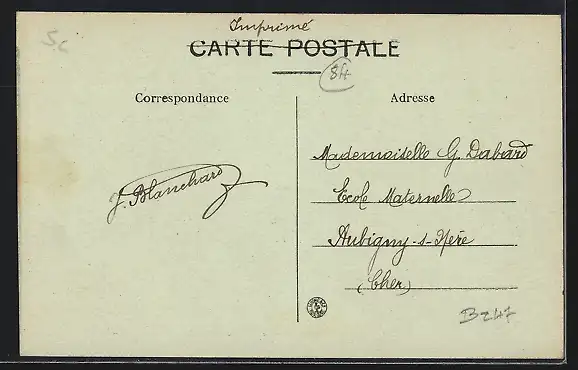 Imprimé
5c
CARTE POSTALE
84
Correspondance
Adresse
Mademoiselle G. Dabard
Ecole Maternelle
Aubigny-s-Nère
(Cher)
J. Blanchard
Bz47